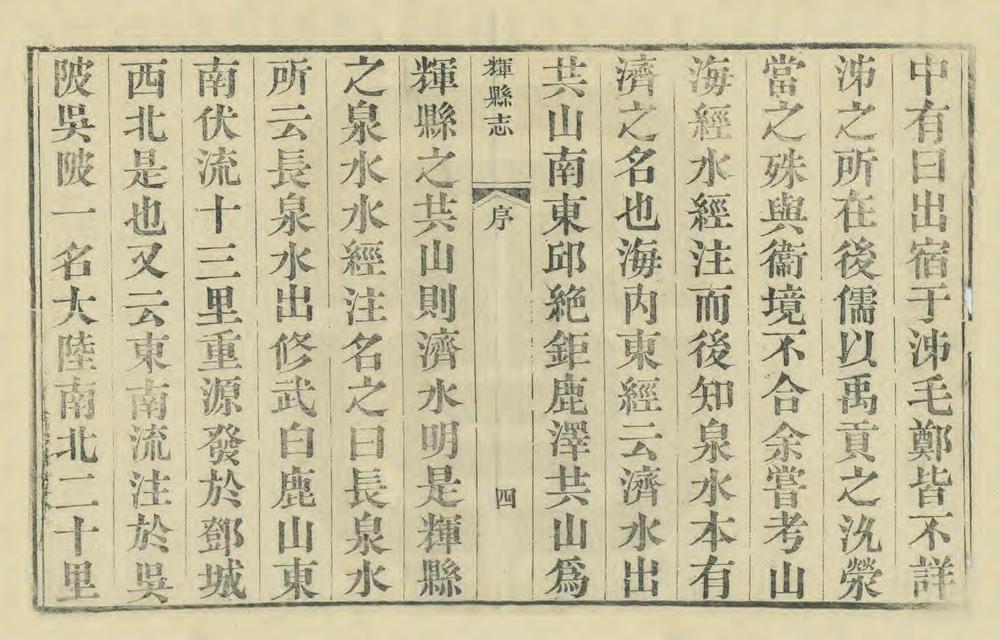 中有曰出宿于泲毛鄭皆不詳
泲之所在後儒以禹貢之沇滎
當之殊與衞境不合余嘗考山
海經水經注而後知泉水本有
濟之名也海内東經云濟水出
共山南東邱絶鉅鹿澤共山爲
輝縣志
序
四
輝縣之共山則濟水明是輝縣
之泉水水經注名之曰長泉水
所云長泉水出修武白鹿山東
南伏流十三里重源發於鄧城
西北是也又云東南流注於吳
陂吳陂一名大陸南北二十里